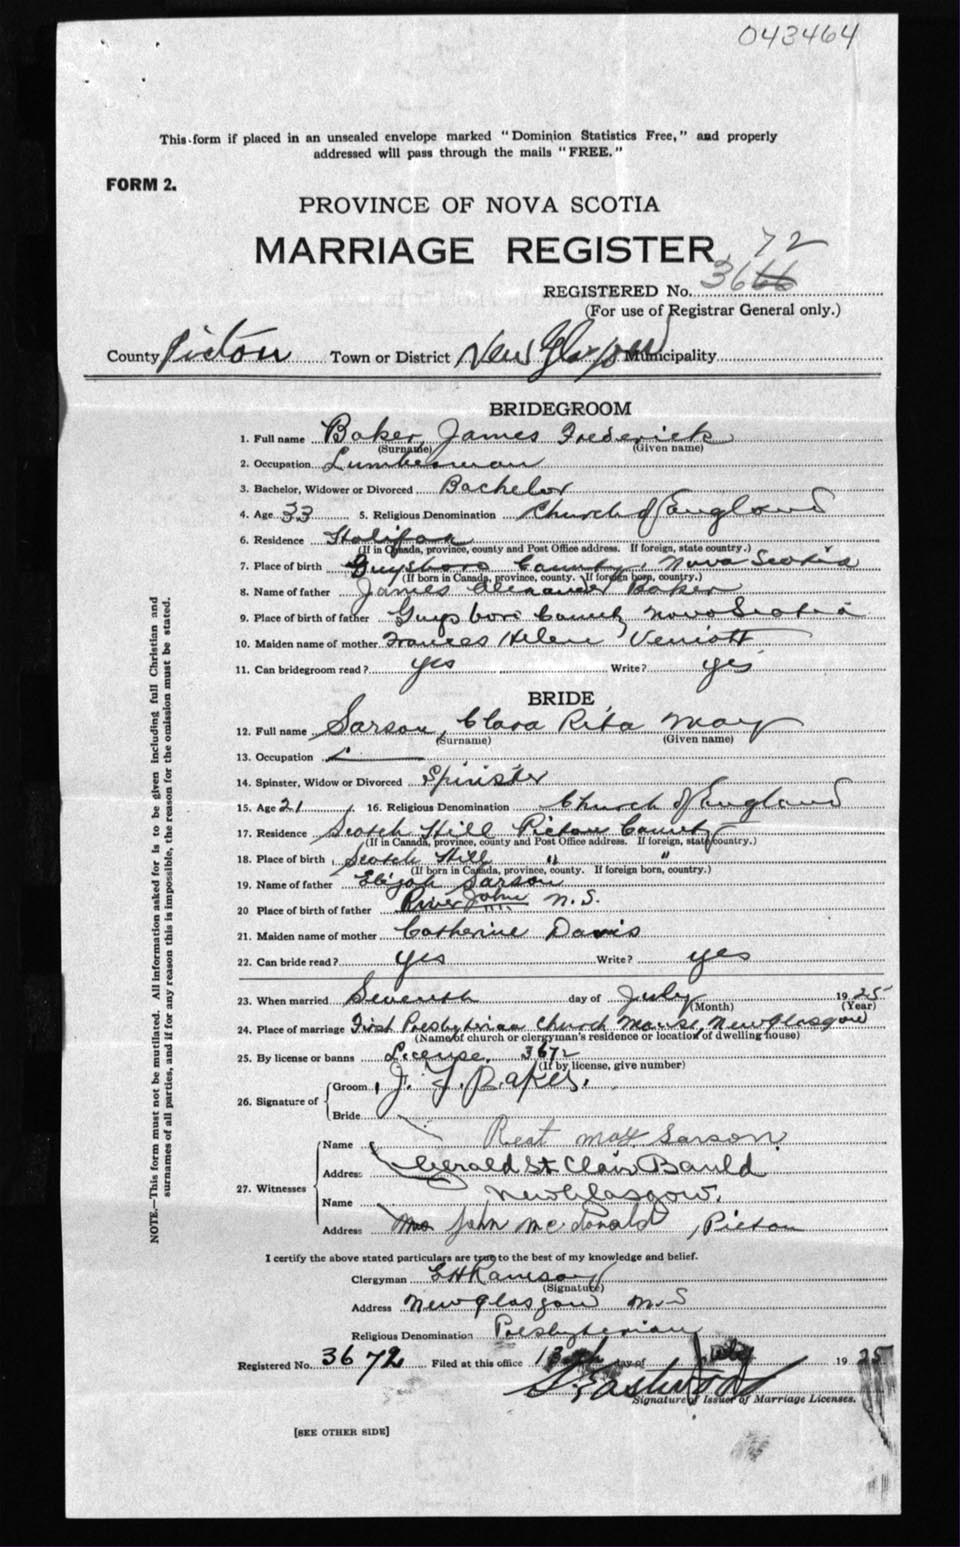 043464
This form if placed in an unsealed envelope marked "Dominion Statistics Free," and properly
addressed will pass through the mails "FREE."
FORM 2.
PROVINCE OF NOVA SCOTIA
MARRIAGE REGISTER
72
REGISTERED No. 3666
(For use of Registrar General only.)
County Pictou Town or District New Glasgow Municipality
BRIDEGROOM
1. Full name Baker, James Frederick
(Surname) (Given name)
2. Occupation Lumberman
3. Bachelor, Widower or Divorced Bachelor
4. Age 33 5. Religious Denomination Church of England
6. Residence Halifax
(If in Canada, province, county and Post Office address. If foreign, state country.)
7. Place of birth Guysboro County, Nova Scotia
(If born in Canada, province, county. If foreign born, country.)
8. Name of father James Alexander Baker
9. Place of birth of father Guysboro County Nova Scotia
10. Maiden name of mother Frances Helene Veniott
11. Can bridegroom read? yes Write? yes
BRIDE
12. Full name Sarson, Clara Rita May
(Surname) (Given name)
13. Occupation
14. Spinster, Widow or Divorced Spinister
15. Age 21 16. Religious Denomination Church of England
17. Residence Scotch Hill Pictou County
(If in Canada, province, county and Post Office address. If foreign, state country.)
18. Place of birth Scotch Hill " "
(If born in Canada, province, county. If foreign born, country.)
19. Name of father Elijah Sarson
20 Place of birth of father River John N.S.
21. Maiden name of mother Catherine Davis
22. Can bride read? yes Write? yes
23. When married Seventh day of July 1925
(Month) (Year)
24. Place of marriage First Presbyterian Church Manse, New Glasgow
(Name of church or clergyman's residence or location of dwelling house)
25. By license or banns License, 3672
(If by license, give number)
26. Signature of
Groom J. F. Baker.
Bride
27. Witnesses
Name May Sarson
Address Gerald St Clair Bauld
Name New Glasgow.
Address Mrs John McDonald, Pictou
I certify the above stated particulars are true to the best of my knowledge and belief.
Clergyman
(Signature)
Address New Glasgow N.S
Religious Denomination Presbyterian
Registered No. 3672 Filed at this office 13th day of July 1925
Eastwood
Signature of Issuer of Marriage Licenses.
[SEE OTHER SIDE]
NOTE.—This form must not be mutilated. All information asked for is to be given including full Christian and
surnames of all parties, and if for any reason this is impossible, the reason for the omission must be stated.